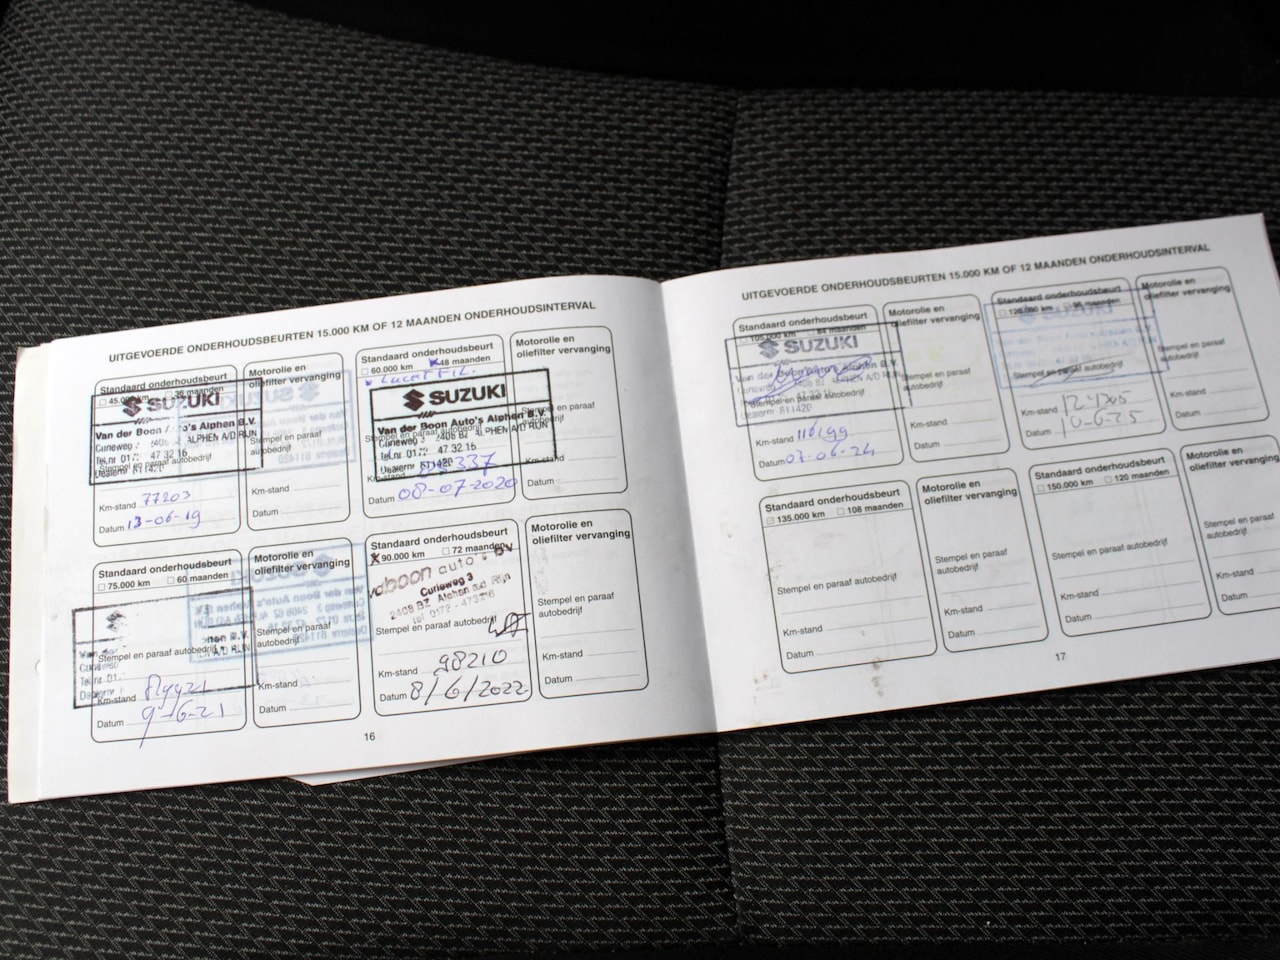 UITGEVOERDE ONDERHOUDSBEURTEN 15.000 KM OF 12 MAANDEN ONDERHOUDSINTERVAL
Standaard onderhoudsbeurt
45.000 km 36 maanden
SUZUKI
Van der Boon Auto's Alphen B.V.
Curieweg 2408 BZ ALPHEN A/D RIJN
Tel.nr. 0172 47 32 16
Stempel en paraaf autobedrijf
Dealernr. 611420
Km-stand 77203
Datum 13-06-19
Motorolie en
oliefilter vervanging
Stempel en paraaf
autobedrijf
Km-stand
Datum
Standaard onderhoudsbeurt
60.000 km x 48 maanden
SUZUKI
Van der Boon Auto's Alphen B.V.
Stempel en paraaf autobedrijf
Curieweg 2408 BZ ALPHEN A/D RIJN
Tel.nr. 0172 47 32 16
Dealernr. 611420
Km-stand
Datum 08-07-2020
Motorolie en
oliefilter vervanging
Stempel en paraaf
autobedrijf
Km-stand
Datum
Standaard onderhoudsbeurt
75.000 km 60 maanden
Stempel en paraaf autobedrijf
Km-stand
Datum 9-6-21
Motorolie en
oliefilter vervanging
Stempel en paraaf
autobedrijf
Km-stand
Datum
Standaard onderhoudsbeurt
x 90.000 km 72 maanden
Curieweg 3
2408 BZ Alphen a.d. Rijn
tel. 0172 - 473216
Stempel en paraaf autobedrijf
Km-stand 98210
Datum 8/6/2022
Motorolie en
oliefilter vervanging
Stempel en paraaf
autobedrijf
Km-stand
Datum
16
UITGEVOERDE ONDERHOUDSBEURTEN 15.000 KM OF 12 MAANDEN ONDERHOUDSINTERVAL
Standaard onderhoudsbeurt
105.000 km 84 maanden
SUZUKI
Stempel en paraaf autobedrijf
Dealernr. 611420
Km-stand
Datum 07-06-24
Motorolie en
oliefilter vervanging
Stempel en paraaf
autobedrijf
Km-stand
Datum
Standaard onderhoudsbeurt
120.000 km 96 maanden
Stempel en paraaf autobedrijf
Km-stand
Datum 10-6-25
Motorolie en
oliefilter vervanging
Stempel en paraaf
autobedrijf
Km-stand
Datum
Standaard onderhoudsbeurt
135.000 km 108 maanden
Stempel en paraaf autobedrijf
Km-stand
Datum
Motorolie en
oliefilter vervanging
Stempel en paraaf
autobedrijf
Km-stand
Datum
Standaard onderhoudsbeurt
150.000 km 120 maanden
Stempel en paraaf autobedrijf
Km-stand
Datum
Motorolie en
oliefilter vervanging
Stempel en paraaf
autobedrijf
Km-stand
Datum
17